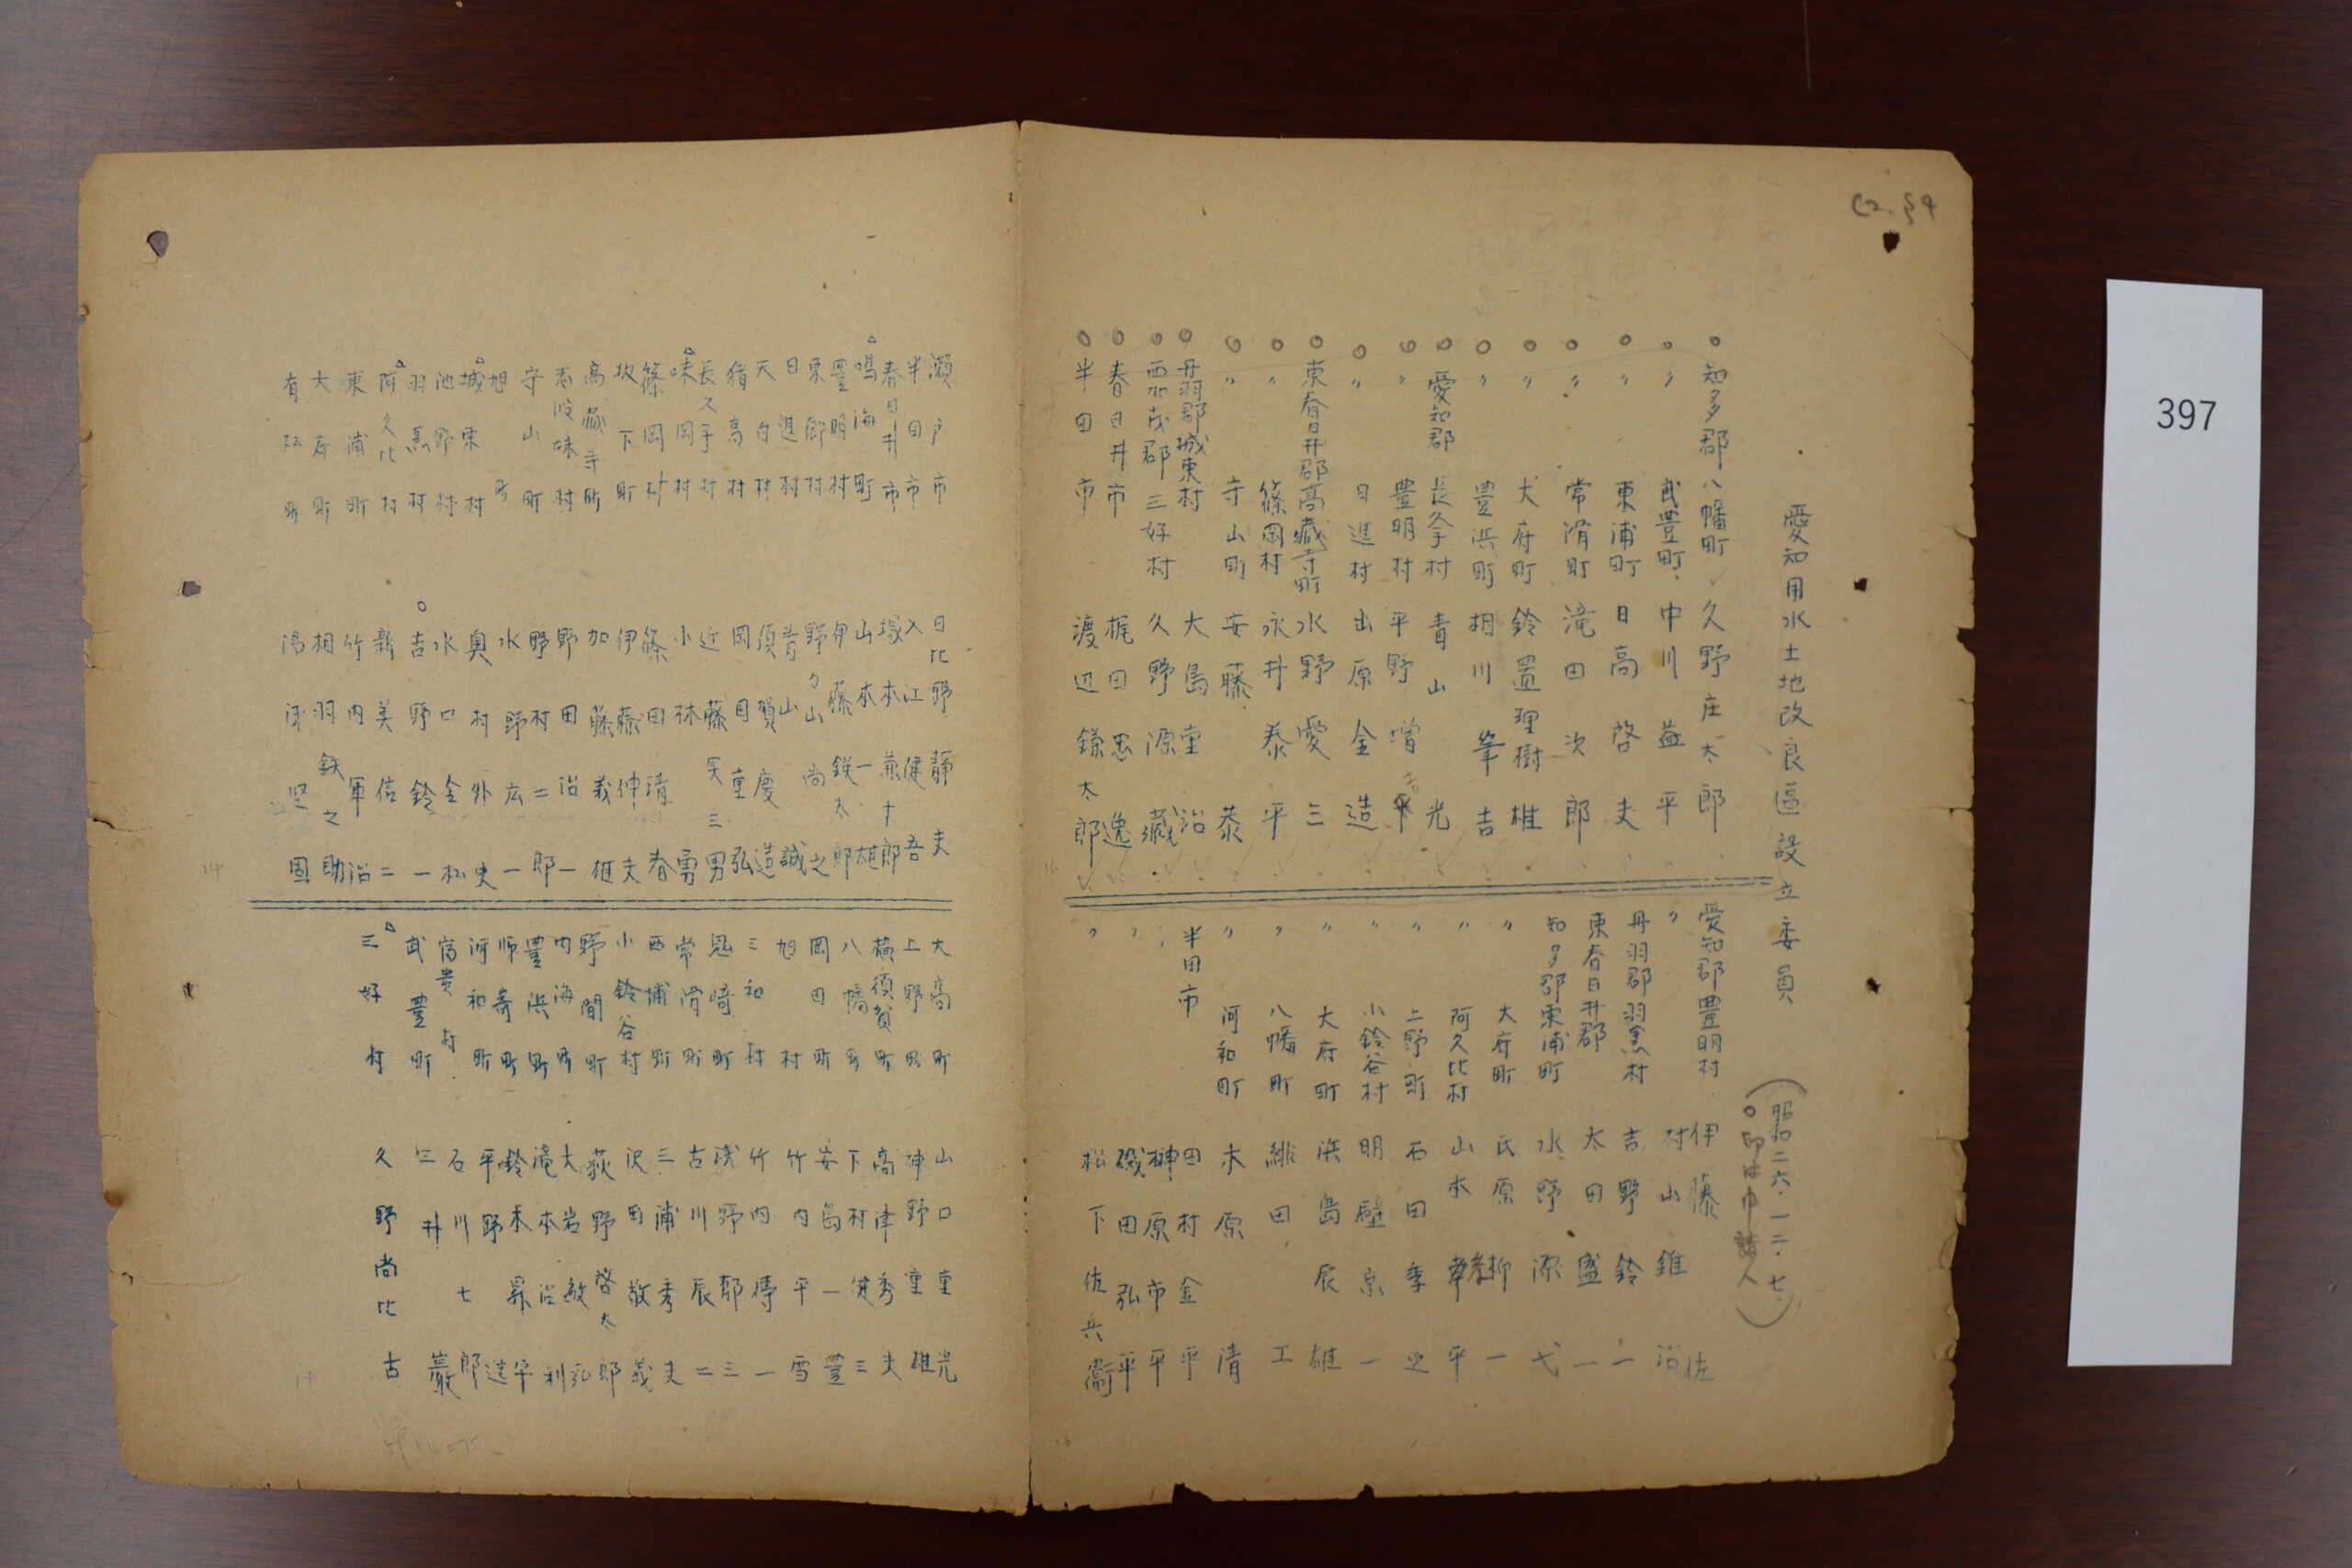 397
愛知用水土地改良區設立委員
(昭和二六・一二・七
○印は申請人)
○知多郡八幡町 久野庄太郎
○〃 武豊町 中川益平
○〃 東浦町 日高啓夫
○〃 常滑町 滝田次郎
○〃 大府町 鈴置理樹雄
○〃 豊浜町 相川峯吉
○愛知郡長久手村 青山光
○〃 豊明村 平野增吉
○〃 日進村 出原金造
○東春日井郡高藏寺町 水野愛三
○〃 篠岡村 永井泰平
○〃 守山町 安藤泰
○丹羽郡城東村 大島堂治
○西加茂郡三好村 久野源藏
○春日井市 梶田忠逸
○半田市 渡辺鎌太郎
愛知郡豊明村 伊藤佐
〃 村山錐治
丹羽郡羽黒村 吉野鈴一
東春日井郡 太田盛一
知多郡東浦町 水野源弌
〃 大府町 氏原柳一
〃 阿久比村 山本孝平
〃 上野町 石田季之
〃 小鈴谷村 明壁京一
〃 大府町 浜島辰雄
〃 八幡町 緋田工
〃 河和町 木原清
半田市 田村金平
〃 榊原市平
〃 磯田弘平
〃 松下佐兵衞
瀬戸市 日比野靜夫
半田市 入江健吾
春日井市 塚本兼十郎
△鳴海町 山本一雄
豊明村 伊藤鋹太郎
東郷村 野々山尚之
日進村 青山誠
天白村 須賀慶造
猪高村 岡田重弘
長久手村 近藤実三男
△味岡村 小林勇
篠岡村 篠田清春
坂下町 伊藤伸夫
高藏寺町 加藤義雄
志段味村 野田治一
守山町 野村二郎
旭町 水野広一
△城東村 奥村外史
池野村 水口金松
羽黒村 ○吉野鈴一
△阿久比村 新美信二
東浦町 竹内軍治
大府町 相羽鉄之助
有松町 湯
大高町 山口重光
上野町 神野重雄
横須賀町 高津秀夫
八幡町 下村健三
岡田町 安島一豊
旭村 竹内平雪
三和村 竹内傳一
鬼崎町 浅野郁三
常滑町 古川辰二
西浦町 三浦秀夫
小鈴谷村 沢田敬義
野間町 荻野啓太郎
内海町 大岩敏弘
豊浜町 滝本治利
師崎町 鈴木昇平
河和町 平野造
富貴村 石川七郎
武豊町 三井巖
△三好村 久野尚比古